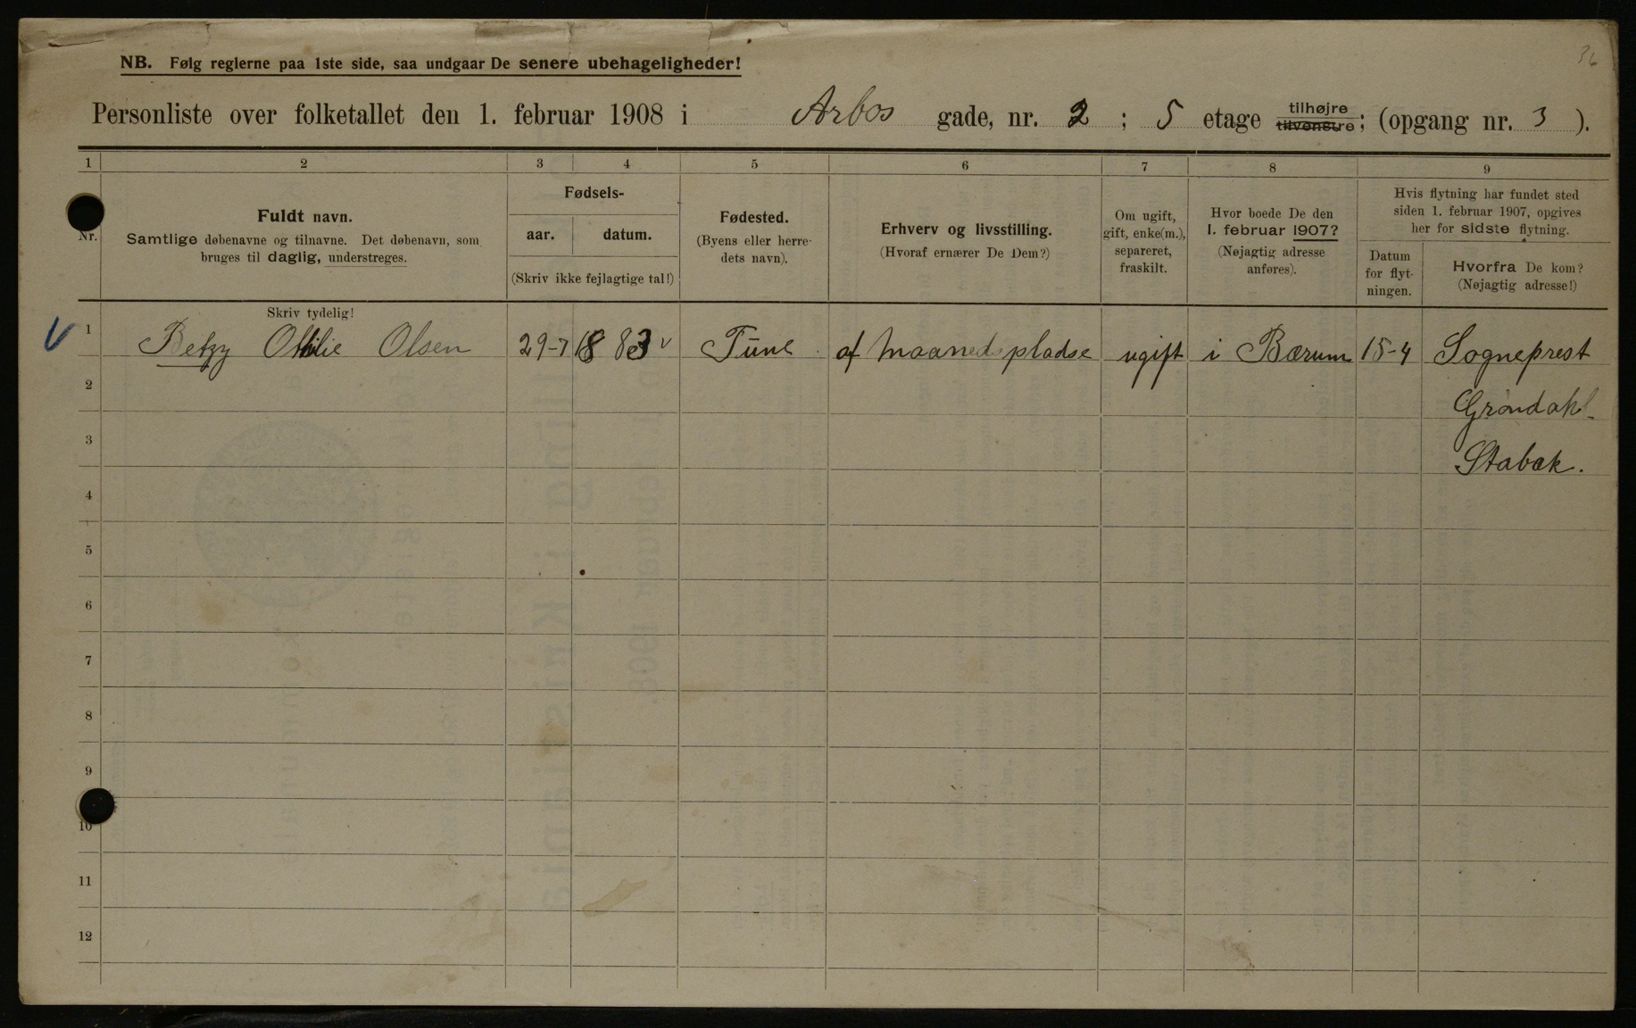 36
NB. Følg reglerne paa 1ste side, saa undgaar De senere ubehageligheder!
Personliste over folketallet den 1. februar 1908 i Arbos gade, nr. 2 ; 5 etage tilhøjre tilvenstre; (opgang nr. 3 ).
1 2 3 4 5 6 7 8 9
Nr.
Fuldt navn.
Samtlige døbenavne og tilnavne. Det døbenavn, som
bruges til daglig, understreges.
Fødsels-
aar. datum.
(Skriv ikke fejlagtige tal!)
Fødested.
(Byens eller herre-
dets navn).
Erhverv og livsstilling.
(Hvoraf ernærer De Dem?)
Om ugift,
gift, enke(m.),
separeret,
fraskilt.
Hvor boede De den
1. februar 1907?
(Nøjagtig adresse
anføres).
Hvis flytning har fundet sted
siden 1. februar 1907, opgives
her for sidste flytning.
Datum
for flyt-
ningen.
Hvorfra De kom?
(Nøjagtig adresse!)
Skriv tydelig!
1 Betzy Othilie Olsen 29-7 1883 Tune af Maanedspladse ugift i Bærum 15-4 Sogneprest
2 Grøndahl
3 Stabæk.
4
5
6
7
8
9
10
11
12